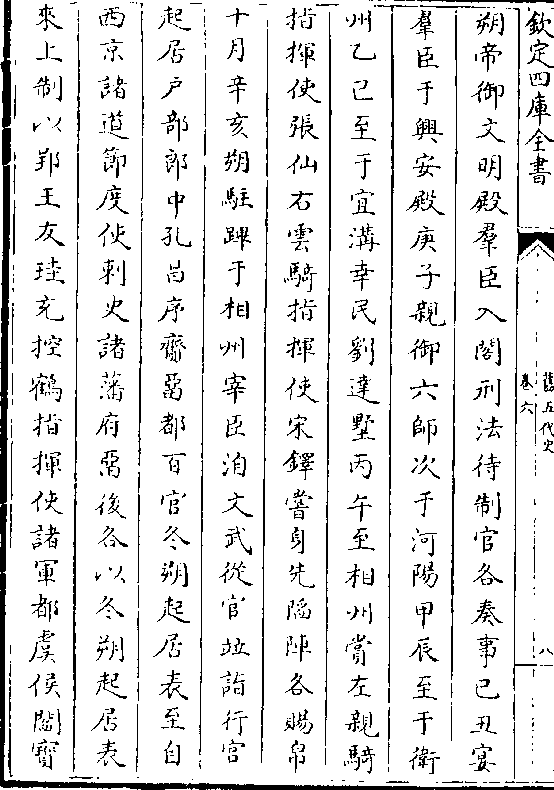 欽定四庫全書
舊五代史
卷六
八
朔帝御文明殿羣臣入閤刑法待制官各奏事己丑宴
羣臣于興安殿庚子親御六師次于河陽甲辰至于衛
州乙巳至于宜溝幸民劉達墅丙午至相州賞左親騎
指揮使張仙右雲騎指揮使宋鐸嘗身先陥陣各賜帛
十月辛亥朔駐蹕于相州宰臣洎文武從官竝詣行宫
起居户部郎中孔昌序齎留都百官冬朔起居表至自
西京諸道節度使刺史諸藩府留後各以冬朔起居表
來上制以郢王友珪充控鶴指揮使諸軍都虞侯閻寶